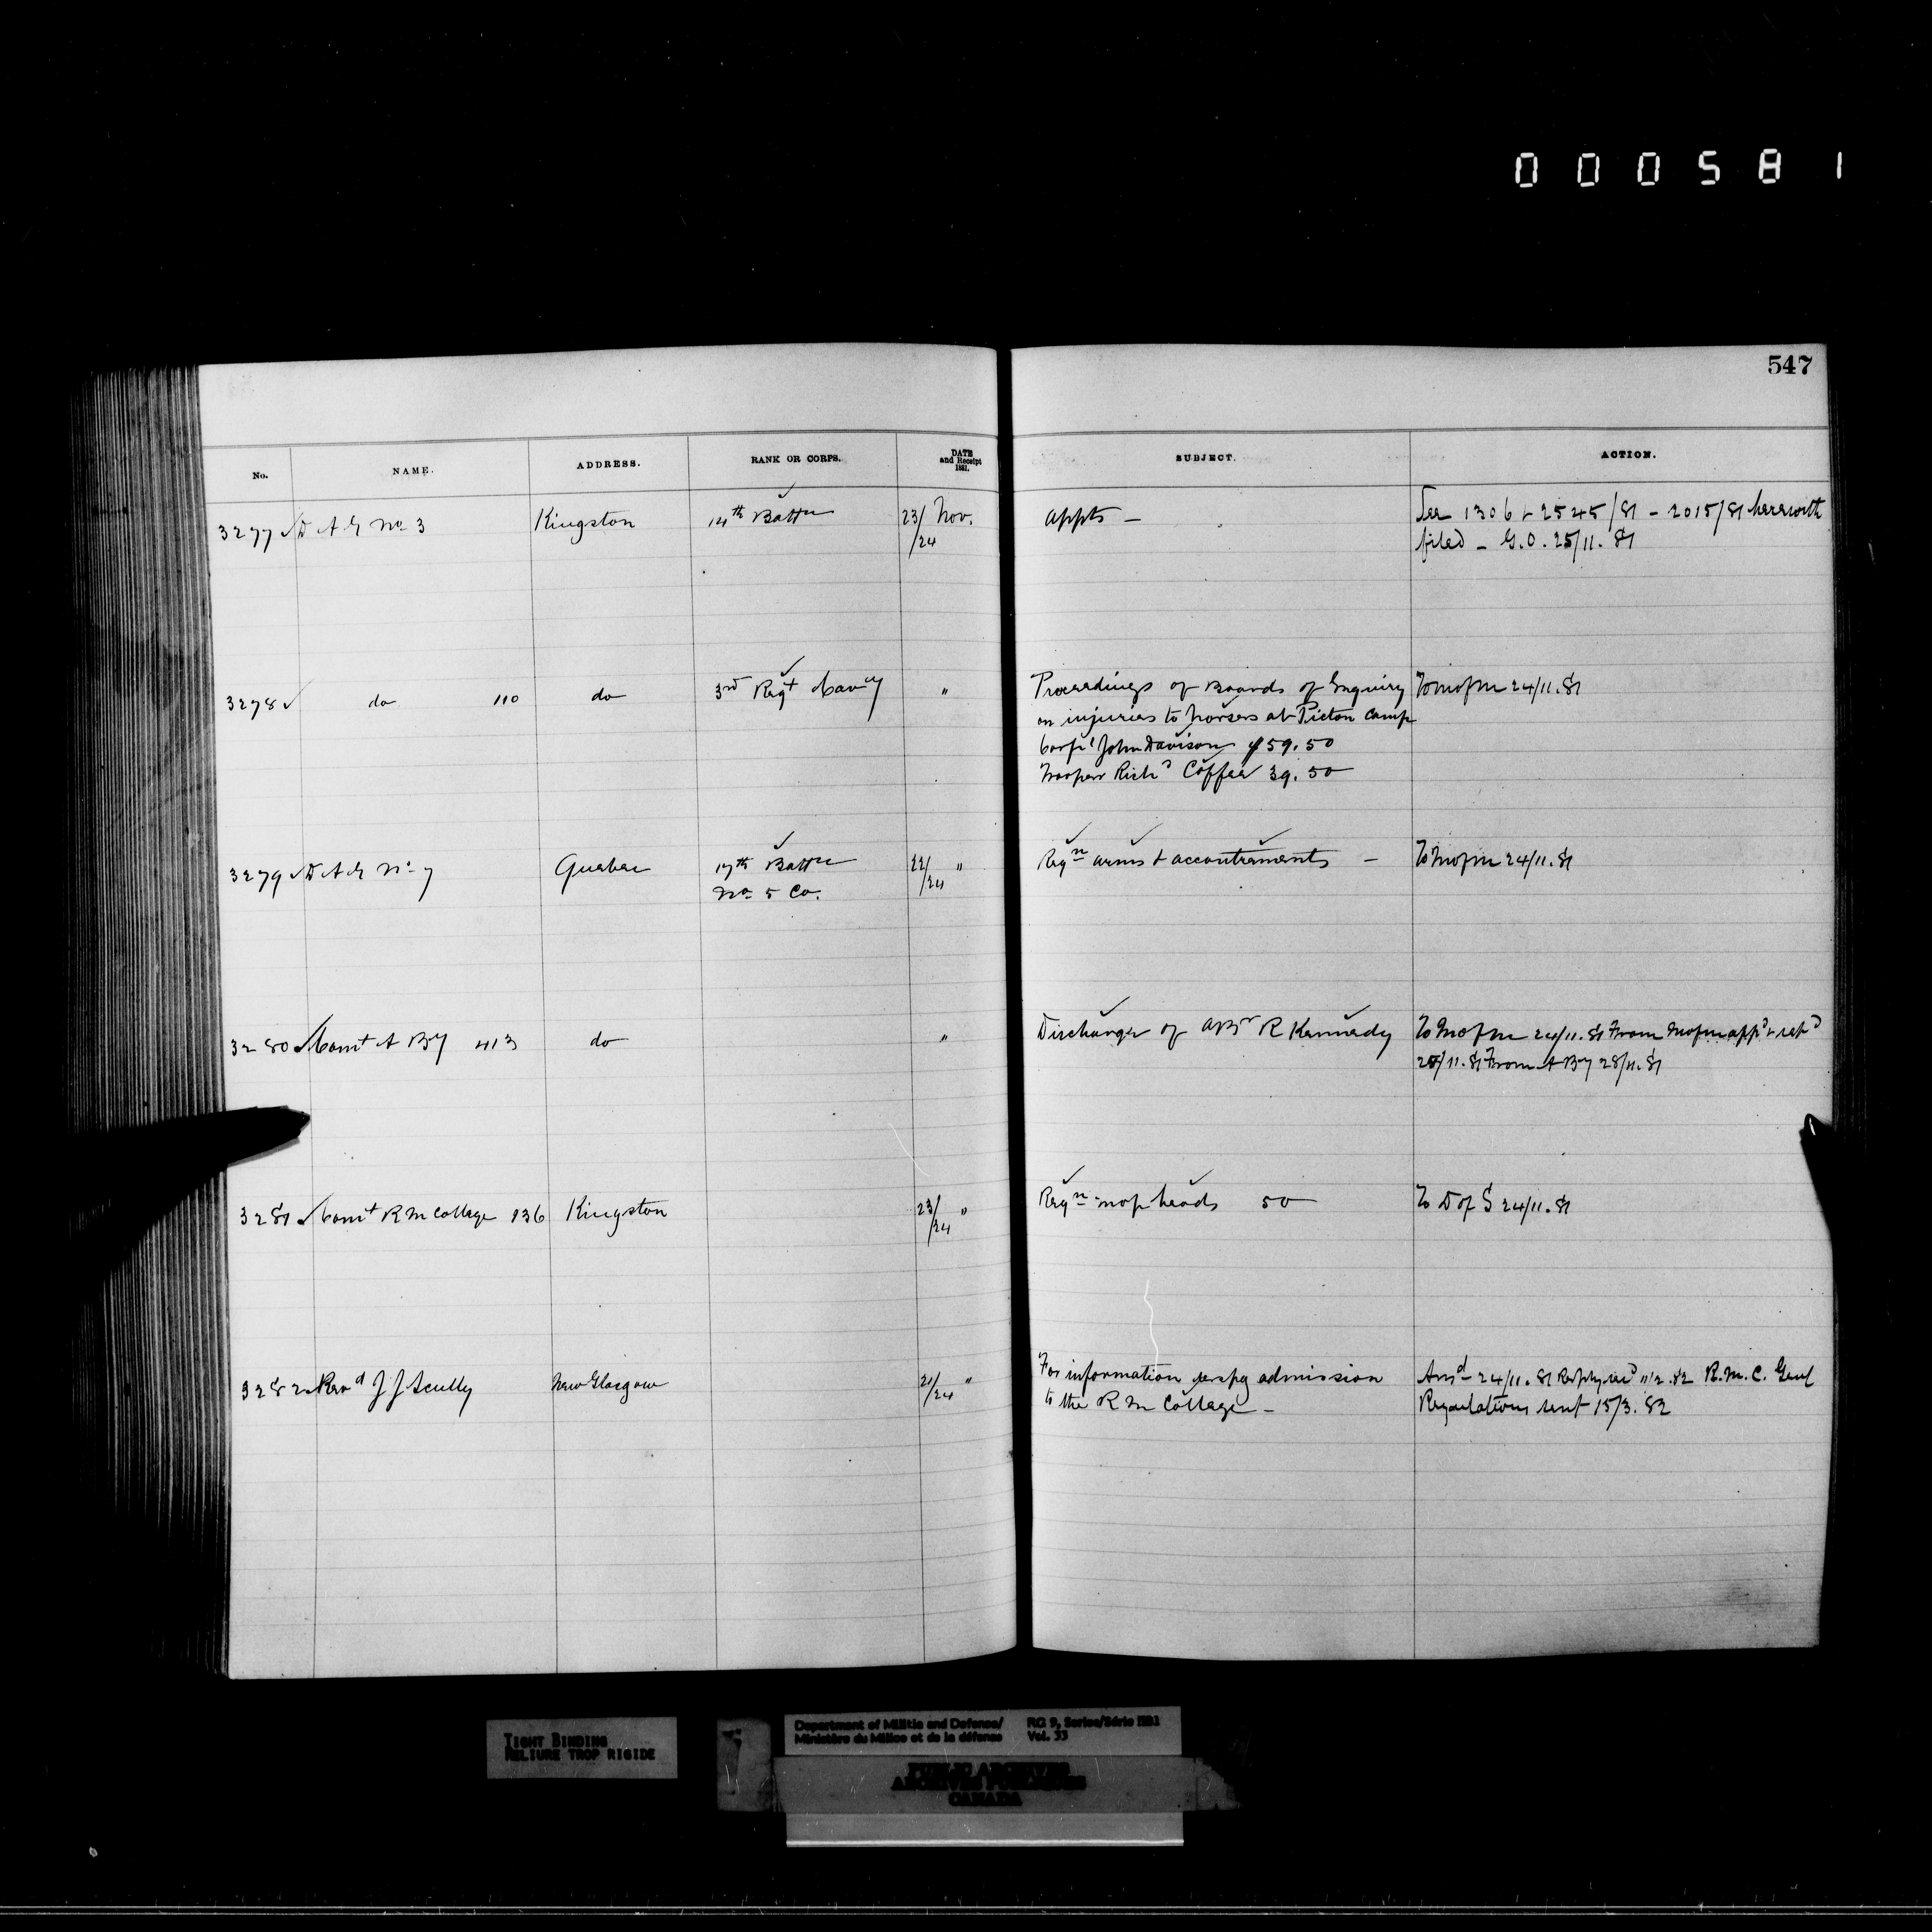 000581
547
No. NAME. ADDRESS. RANK OR CORPS. DATE and Receipt 1881. SUBJECT. ACTION.
3277 ✓ D A G No 3 Kingston 14th Battn 23/24 Nov. Appts — See 1306 & 2545/81 – 2015/81 herewith
filed – G.O. 25/11.81
3278 ✓ do 110 do 3rd Regt Cavcy " Proceedings of Boards of Enquiry To M of M 24/11.81
on injuries to horses at Picton Camp
Corpl John Davison $59.50
Trooper Richd Coffee 39.50
3279 ✓ D A G No 7 Quebec 17th Battn 22/24 " Reqn arms & accoutrements — To M of M 24/11.81
No 5 Co.
3280 ✓ Comt A By 413 do " Discharge of R Kennedy To M of M 24/11.81 From M of M appd & retd
25/11.81 From A By 28/11.81
3281 ✓ Comt R M College 136 Kingston 23/24 " Reqn mop heads 50 To D of S 24/11.81
3282 Revd J J Scully New Glasgow 21/24 " For information respg admission Ansd 24/11.81 R.M.C. Genl
to the R M College — Regulations sent 15/3.82
TIGHT BINDING
RELIURE TROP RIGIDE
Department of Militia and Defence/
Ministère du Milice et de la défense
RG 9, Series/Série IIB1
Vol. 33
PUBLIC ARCHIVES
ARCHIVES PUBLIQUES
CANADA